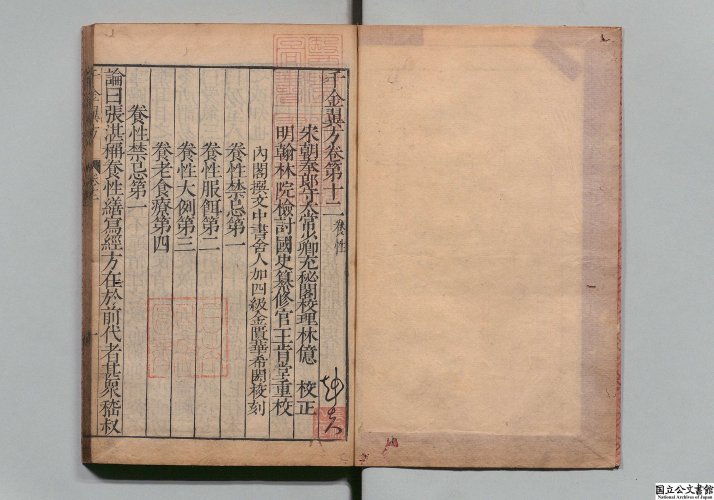 千金翼方卷第十二 養性
宋朝奉郎守太常少卿充秘閣校理林億 校正
明翰林院檢討國史纂修官王肯堂重校
內閣撰文中書舍人加四級金匱華希閎校刻
養性禁忌第一
養性服餌第二
養性大例第三
養老食療第四
養性禁忌第一
論曰張湛稱養性繕寫經方在於前代者甚衆嵇叔
国立公文書館
National Archives of Japan